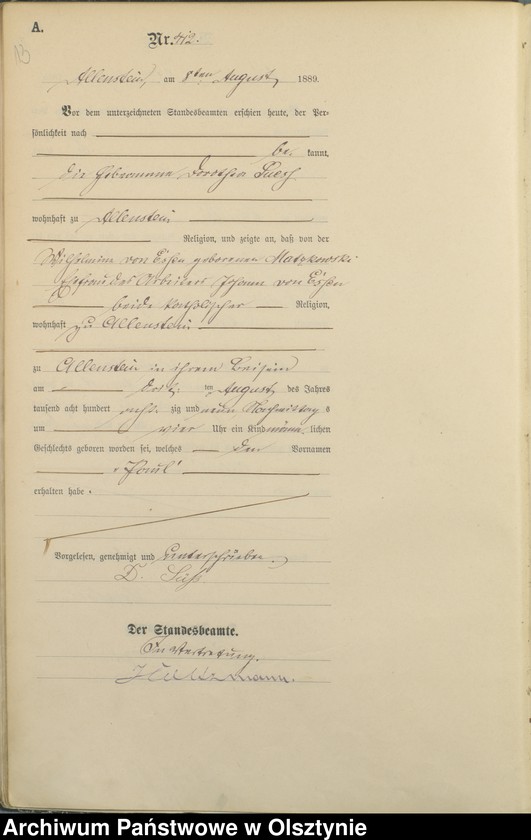 A.
13
Nr. 412.
Allenstein, am 8ten August 1889.
Vor dem unterzeichneten Standesbeamten erschien heute, der Per-
sönlichkeit nach
be kannt,
die Hebeamme Dorothea
wohnhaft zu Allenstein
Religion, und zeigte an, daß von der
Wilhelmine von Essen geborenen Matzkowski
Ehefrau des Arbeiters Johann von Essen
beide katholischer Religion,
wohnhaft zu Allenstein
zu Allenstein in ihrem Beisein
am ten August des Jahres
tausend acht hundert acht zig und neun Nachmittags
um vier Uhr ein Kind männ lichen
Geschlechts geboren worden sei, welches den Vornamen
"Paul"
erhalten habe.
Vorgelesen, genehmigt und unterschrieben
D.
Der Standesbeamte.
In Vertretung.
Archiwum Państwowe w Olsztynie